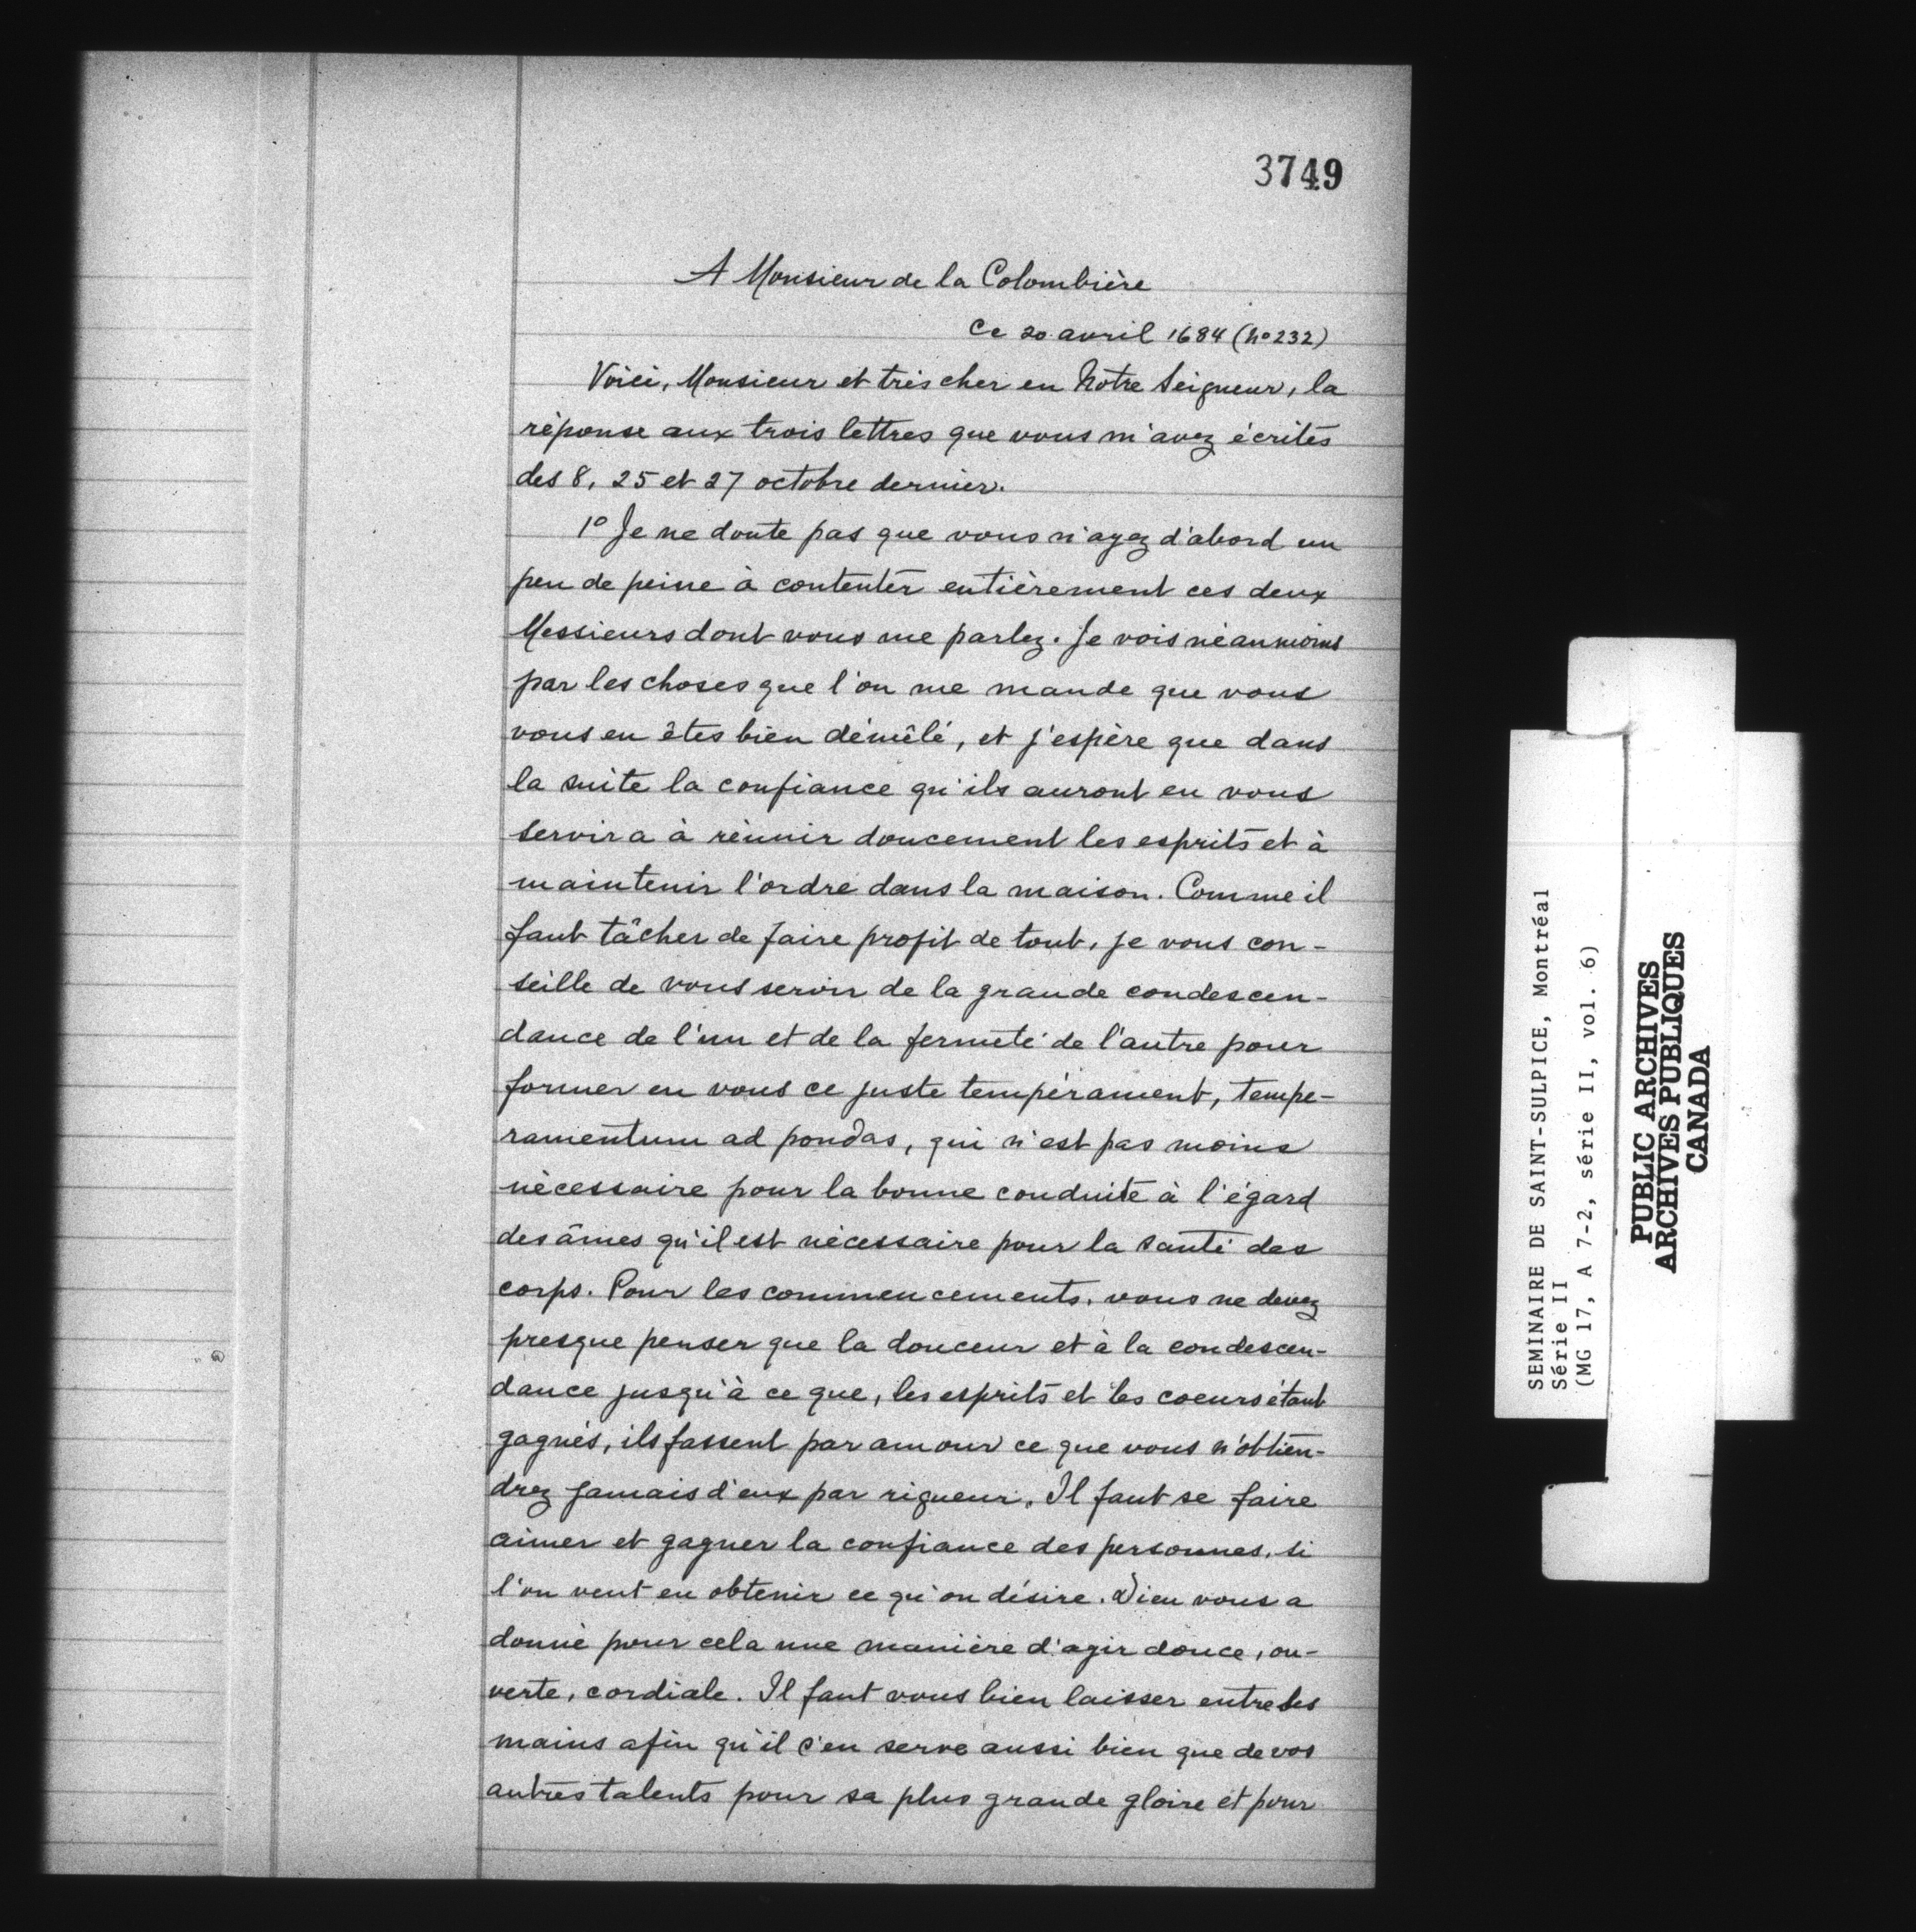 3749
A Monsieur de la Colombière
Ce 20 avril 1684 (No 232)
Voici, Monsieur et très cher en Notre Seigneur, la
réponse aux trois lettres que vous m'avez écrites
des 8, 25 et 27 octobre dernier.
1o Je ne doute pas que vous n'ayez d'abord un
peu de peine à contenter entièrement ces deux
Messieurs dont vous me parlez. Je vois néanmoins
par les choses que l'on me mande que vous
vous en êtes bien démêlé, et j'espère que dans
la suite la confiance qu'ils auront en vous
servira à réunir doucement les esprits et à
maintenir l'ordre dans la maison. Comme il
faut tâcher de faire profit de tout, je vous con-
seille de vous servir de la grande condescen-
dance de l'un et de la fermeté de l'autre pour
former en vous ce juste tempérament, tempe-
ramentum ad pondas, qui n'est pas moins
nécessaire pour la bonne conduite à l'égard
des âmes qu'il est nécessaire pour la santé des
corps. Pour les commencements, vous ne devez
presque penser que la douceur et à la condescen-
dance jusqu'à ce que, les esprits et les coeurs étant
gagnés, ils fassent par amour ce que vous n'obtien-
drez jamais d'eux par rigueur. Il faut se faire
aimer et gagner la confiance des personnes, si
l'on veut en obtenir ce qu'on désire. Dieu vous a
donné pour cela une manière d'agir douce, ou-
verte, cordiale. Il faut vous bien laisser entre ses
mains afin qu'il s'en serve aussi bien que de vos
autres talents pour sa plus grande gloire et pour
SEMINAIRE DE SAINT-SULPICE, Montréal
Série II
(MG 17, A 7-2, série II, vol. 6)
PUBLIC ARCHIVES
ARCHIVES PUBLIQUES
CANADA